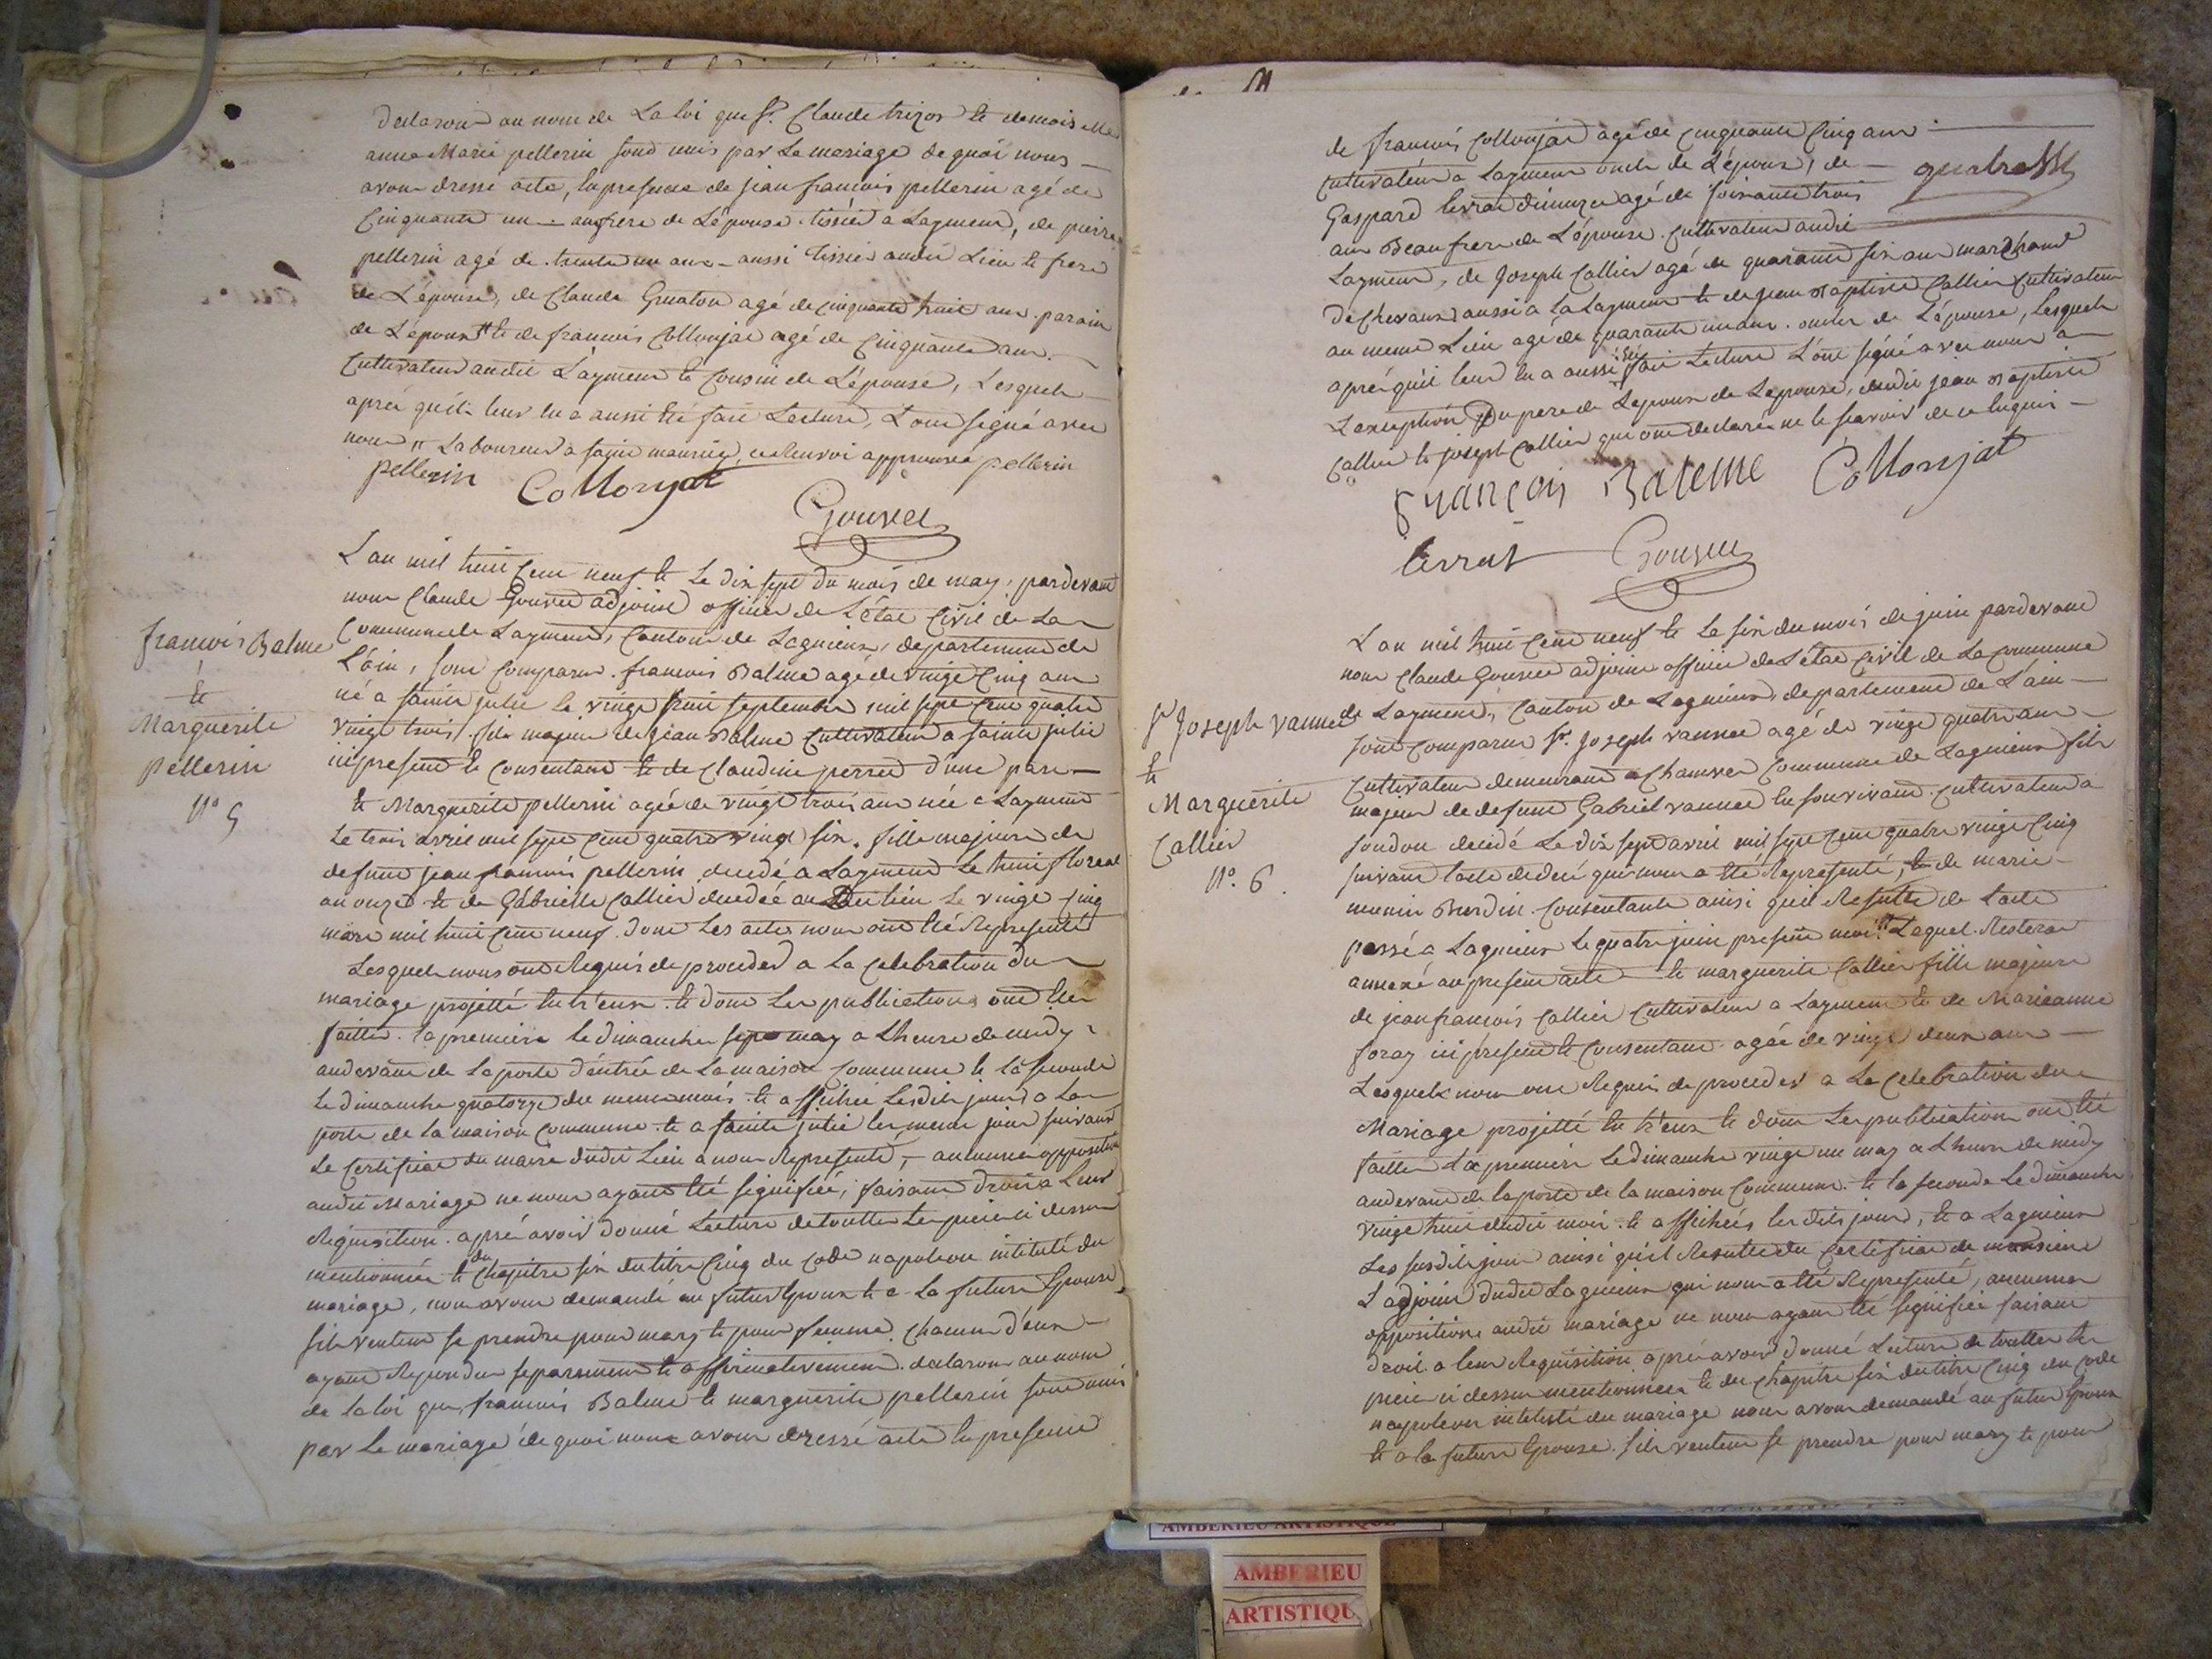 declarons au nom de La loi que Sr. Claude trizos et demoiselle
anne Marie pellerin sont unis par Le mariage de quoi nous
avons dressé acte, en presence de jean francois pellerin agé de
Cinquante un ans frere de L'épouse tissier a Laymens, de pierre
pellerin agé de trente un ans aussi tissier audit Lieu et frere
de L'épouse, de Claude agé de cinquante huit ans parain
de L'époux et de francois Collonjat agé de Cinquante ans
Cultivateur audit Layment et Cousin de L'épouse, Lesquels
aprés qu'il leur en a aussi été fait Lecture, L'ont signé avec
nous " Laboureur a saint maurice, ce Renvoi approuvé pellerin
pellerin Collonjat
Gouvet
francois Balme
et
Marguerite
pellerin
N° 5
L'an mil huit Cent neuf et Le dix sept du mois de may, pardevant
nous Claude Gouvet adjoint officier de L'état Civil de La
Commune de Layment, Canton de Lagnieux, departement de
L'ain, sont Comparus francois Balme agé de vingt Cinq ans
né a sainte julie le vingt huit septembre mil sept Cent quatre
vingt trois, fils majeur de jean Balme Cultivateur a sainte julie
ici present et Consentant et de Claudine perret d'une part
et Marguerite pellerin agée de vingt trois ans née a Layment
Le trois avril mil sept Cent quatre vingt six, fille majeure de
defunt jean francois pellerin decedé a Layment Le huit floreal
an onze et de Gabrielle Callier decedée audit lieu Le vingt Cinq
mars mil huit Cent neuf dont Les actes nous ont été Representés
Lesquels nous ont Requis de proceder a La Celebration du
mariage projetté entr'eux et dont Les publications ont été
faittes la premiere Le dimanche sept may a L'heure de midy
audevant de La porte d'éntrée de La maison Commune et la seconde
Le dimanche quatorze du meme mois et affichée Lesdits jours a La
porte de la maison Commune et a sainte julie les meme jour suivant
Le Certificat du maire dudit Lieu a nous Representé, aucune opposition
audit Mariage ne nous ayant été signifiée, faisant droit a Leur
Réquisition, aprés avoir donné Lecture de toutte Les piece ci dessus
mentionnée et du Chapitre six du titre Cinq du Code napoleon intitulé du
mariage, nous avons demandé au futur Epoux et a La future Epouse
s'ils veulent se prendre pour mary et pour femme, Chacun d'eux
ayant Repondu separement et affirmativement declarons au nom
de la loi que francois Balme et marguerite pellerin sont unis
par Le mariage de quoi nous avons dressé acte en presence
de francois Collonjat agé de Cinquante Cinq ans
Cultivateur a Layment oncle de L'époux, de
Gaspard agé de soixante trois
ans Beau frere de L'épouse Cultivateur audit
Layment, de Joseph Callier agé de quarante six ans marchand
de Chevaux aussi a La Layment et de jean Baptiste Callier Cultivateur
au meme Lieu agé de quarante un ans oncles de L'épouse, Lesquels
aprés qu'il leur en a aussi été fait Lecture L'ont signé avec nous a
L'exception Du pere de L'epoux de L'epouse, dudit jean Baptiste
Callier et joseph Callier que ont declarés ne le scavoir de ce Enquis
François Baleme Collonjat
terrat Gouvet
Sr Joseph vannet
et
Marguerite
Callier
N° 6
L'an mil huit Cent neuf et Le six du mois de juin pardevant
nous Claude Gouvet adjoint officier de L'état Civil de La Commune
de Layment, Canton de Lagnieux, departement de L'ain
sont Comparus Sr. Joseph vannet agé de vingt quatre ans
Cultivateur demeurant a Commune de Lagnieux fils
majeur de defunt Gabriel vannet En son vivant Cultivateur a
soudon decedé Le dix sept avril mil sept Cent quatre vingt Cinq
suivant l'acte de decé qui nous a été Representé, et de marie
Burdin Consentante ainsi qu'il Resulte de L'acte
passé a Lagnieux Le quatre juin present mois Lequel Restera
annexé au present acte et marguerite Callier fille majeure
de jean francois Callier Cultivateur a Layment et de Marieanne
foray ici present et Consentant agée de vingt deux ans
Lesquels nous ont Requis de proceder a La Celebration du
Mariage projetté entr'eux et dont Les publication ont été
faittes La premiere Le dimanche vingt un may a L'heure de midy
audevant de la porte de la maison Commune et la seconde Le dimanche
vingt huit dudit mois et affichés lesdits jours, et a Lagnieux
Les susdits jour ainsi qu'il Resulte du Certificat de monsieur
L'adjoint dudit Lagnieux qui nous a été Representé, aucune
opposition audit mariage ne nous ayant été signifiée faisant
droit a leur Requisition aprés avoir donné Lecture de touttes les
piece ci dessus mentionnées et du Chapitre six du titre Cinq du Code
napoleon intitulé du mariage nous avons demandé au futur Epoux
et a la future Epouse s'ils veulent se prendre pour mary et pour
AMBERIEU ARTISTIQUE
AMBERIEU
ARTISTIQU